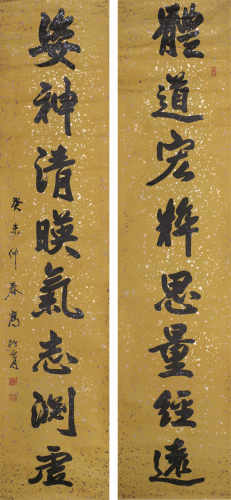 體道宏粹思量經遠
姿神清暎氣志淵虛
癸未仲春